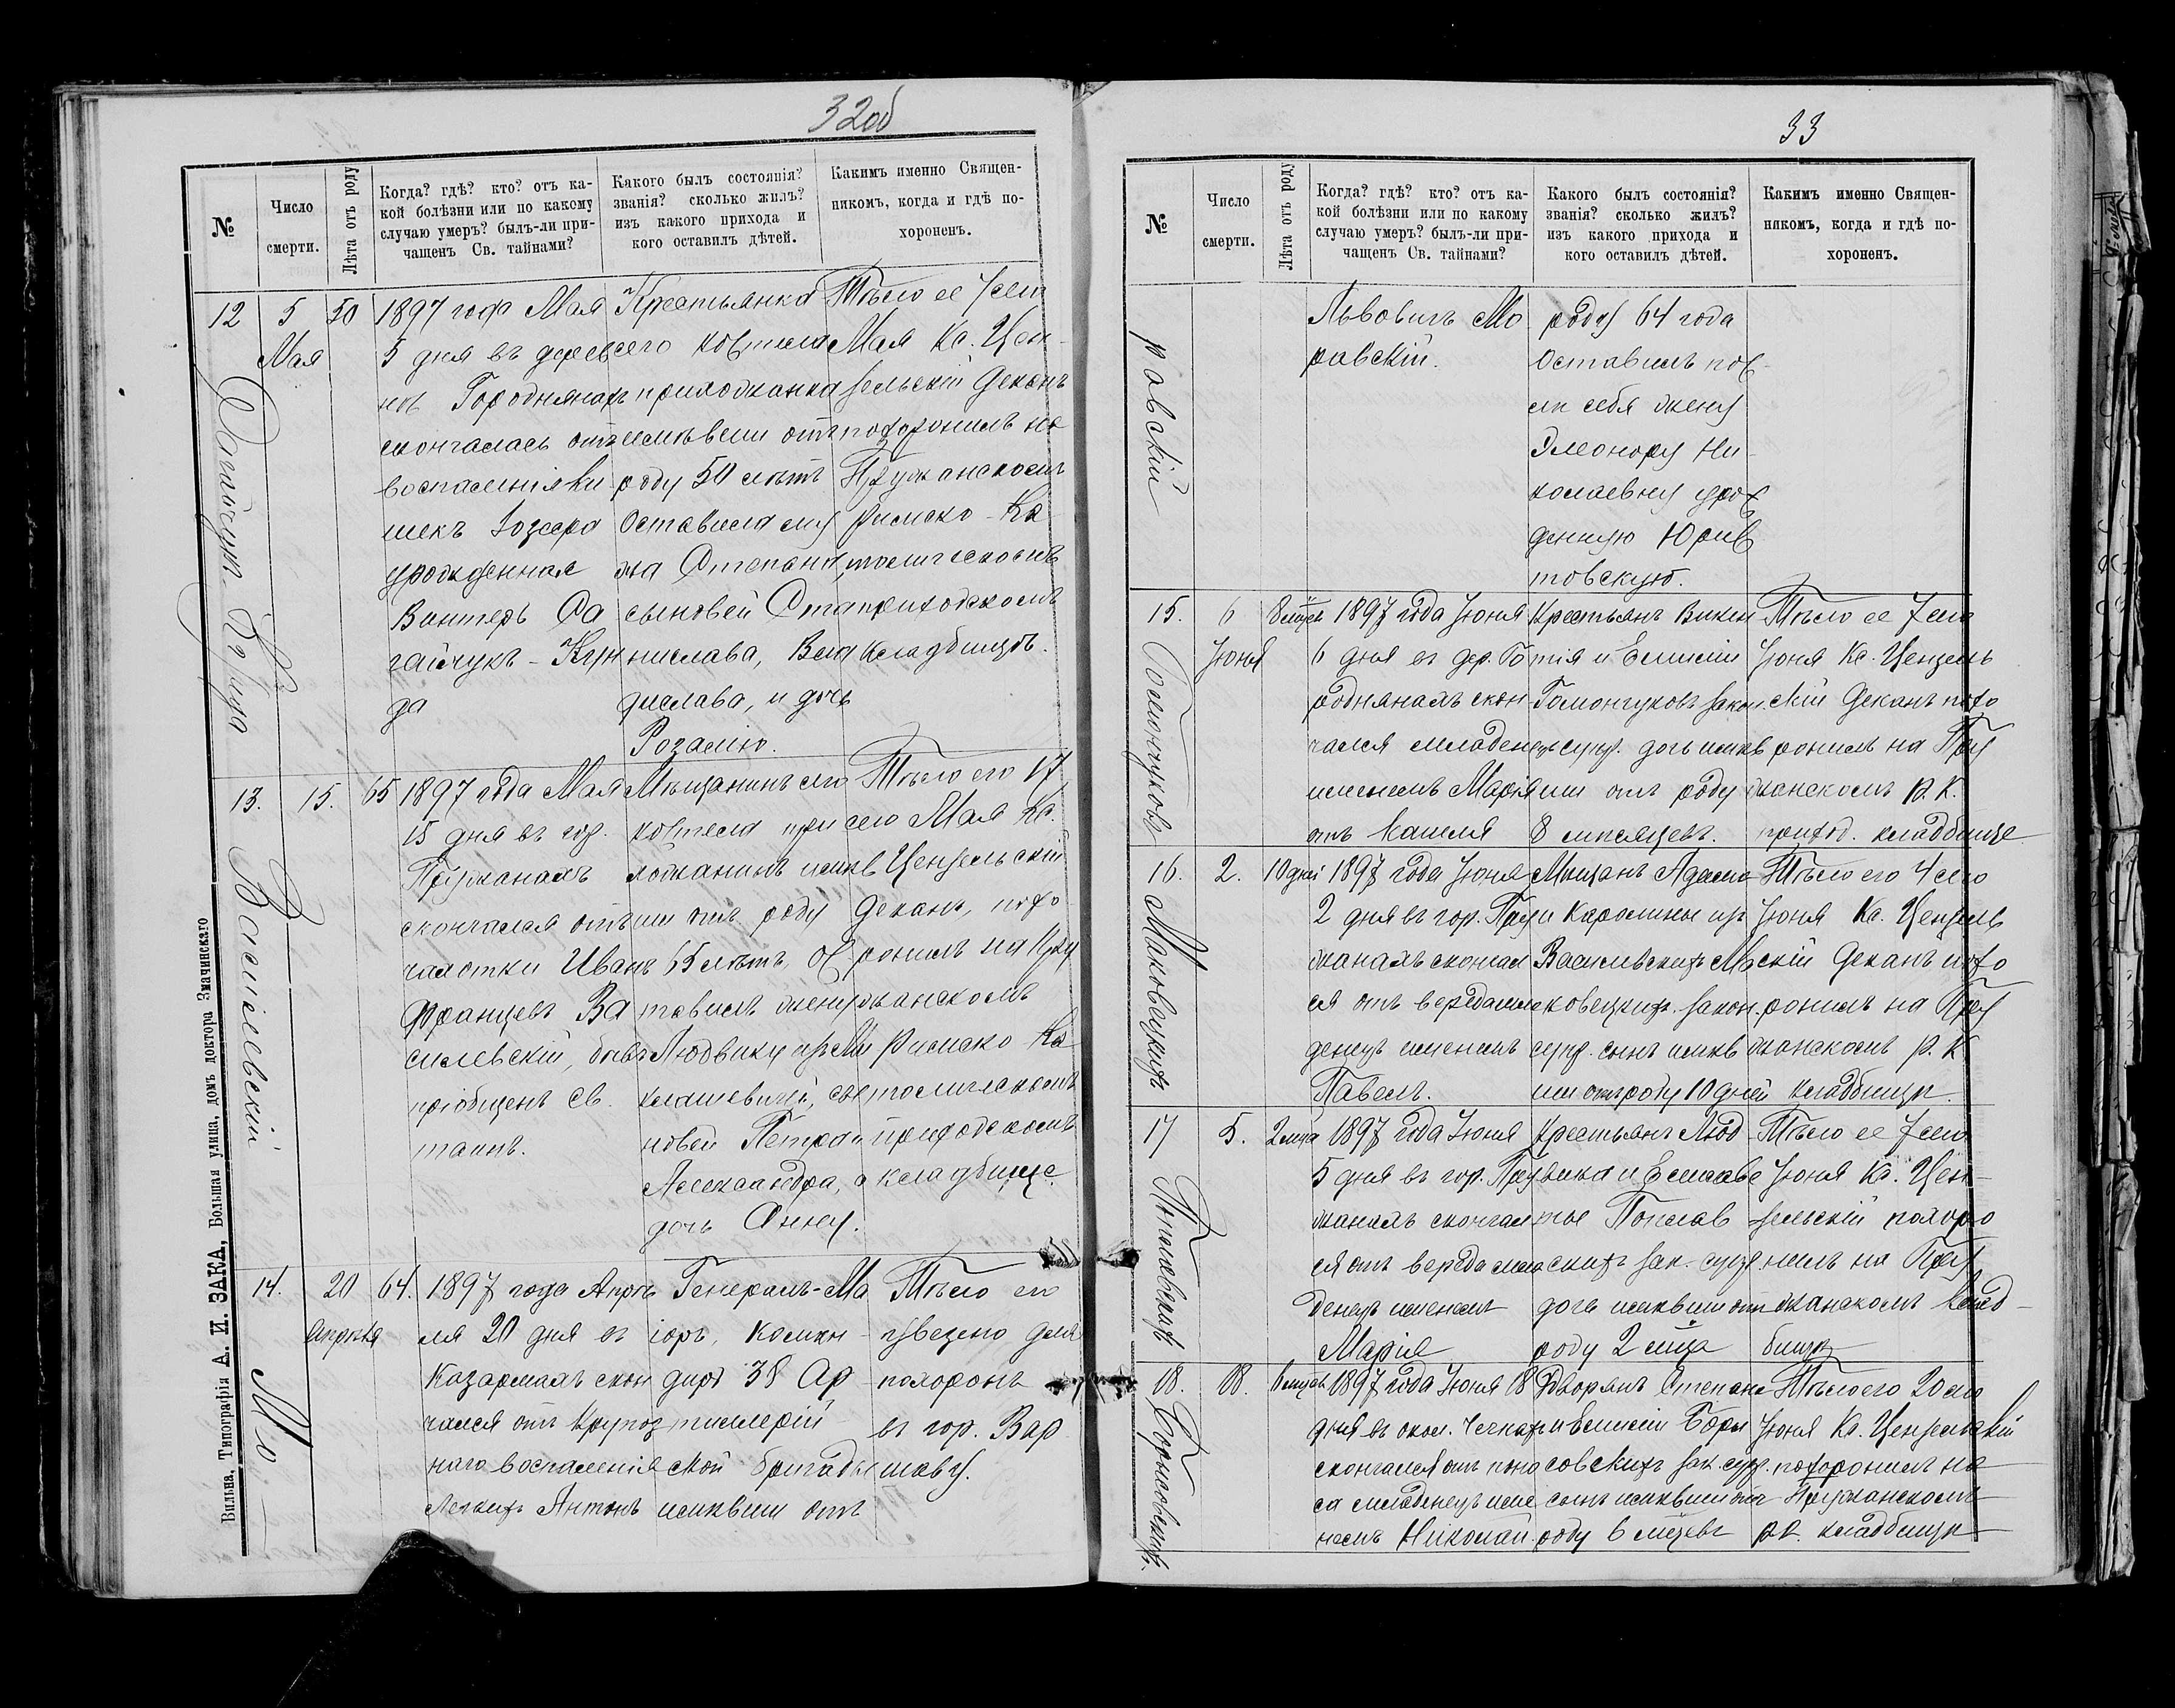 32об
№
Число
смерти.
Лѣта отъ роду
Когда? гдѣ? кто? отъ ка-
кой болѣзни или по какому
случаю умеръ? былъ-ли при-
чащенъ Св. тайнами?
Какого былъ состоянія?
званія? сколько жилъ?
изъ какого прихода и
кого оставилъ дѣтей.
Какимъ именно Священ-
никомъ, когда и гдѣ по-
хороненъ.
12
5
Мая
50
Кунда
1897 года Мая
5 дня въ дерев
нѣ Городнянахъ
скончалась отъ
воспаленія ки
шекъ Іозефа
урожденная
Винтеръ Са
гайчукъ - Кун
да
Крестьянка
сего костела
прихожанка
имѣвши отъ
роду 50 лѣтъ
Оставила му
жа Степана,
сыновей Ста
нислава, Вла
дислава, и дочь
Розалію.
Тѣло ее 7 сего
Мая Кс. Цен-
зельскій Деканъ
похоронилъ на
Пружанскомъ
Римско-Ка
толическомъ
приходскомъ
кладбищѣ.
13.
15.
65
Василевскій
1897 года Мая
15 дня въ гор.
Пружанахъ
скончался отъ
чахотки Иванъ
Францевъ Ва
силевскій, бывъ
пріобщенъ Св.
таинъ.
Мѣщанинъ сего
костела при
хожанинъ имѣв
ши отъ роду
65 лѣтъ, Ос
тавилъ жену
Людвику изъ Ми
клашевичей, сы
новей Петра и
Александра, а
дочь Анну.
Тѣло его 17
сего Мая Кс.
Цензельскій
Деканъ, похо
ронилъ на Пру
жанскомъ
Римско Ка
толическомъ
приходскомъ
кладбище.
14.
20
Апрѣля
64.
Мо-
1897 года Апрѣ
ля 20 дня въ
Казармахъ скон
чался отъ Крупоз
наго воспаленія
Легкихъ Антонъ
Генералъ-Ма
іоръ, Коман-
диръ 38 Ар
тиллерій
ской бригады
имѣвши отъ
Тѣло его
увезено для
похоронъ
въ гор. Вар
шаву.
Вильна, Типографія А. И. ЗАКА, Большая улица, домъ доктора Змачинскаго
33
№
Число
смерти.
Лѣта отъ роду
Когда? гдѣ? кто? отъ ка-
кой болѣзни или по какому
случаю умеръ? былъ-ли при-
чащенъ Св. тайнами?
Какого былъ состоянія?
званія? сколько жилъ?
изъ какого прихода и
кого оставилъ дѣтей.
Какимъ именно Священ-
никомъ, когда и гдѣ по-
хороненъ.
равскій
Львовичъ Мо
равскій.
роду 64 года
Оставилъ пос-
лѣ себя жену
Элеонору Ни-
колаевну урож
денную Юрив
товскую.
15.
6
Июня
8 мцевъ
Гомончуковъ
1897 года Июня
6 дня въ дер. Го
роднянахъ скон
чался младенецъ
именемъ Марія
отъ кашля
Крестьянъ Викен
тія и Емиліи
Гомончуковъ закон.
супр. дочь имѣв
ши отъ роду
8 мѣсяцевъ.
Тѣло ее 7 сего
Июня Кс. Цензель
скій Деканъ похо
ронилъ на Пру
жанскомъ Р. К.
приход. кладбище
16.
2.
10 дней
Маковецкихъ
1897 года Июня
2 дня въ гор. Пру
жанахъ сконча
ся отъ вереда мла
денецъ именемъ
Павелъ.
Мѣщанъ Адама
и Каролины изъ
Василевскихъ Ма
ковецкихъ закон.
супр. сынъ имѣв
ши отъ роду 10 дней
Тѣло его 4 сего
Июня Кс. Цензель
скій Деканъ похо
ронилъ на Пру
жанскомъ Р. К.
кладбищѣ.
17
5.
2 мца
Поплавскихъ
1897 года Июня
5 дня въ гор. Пру
жанахъ скончал
ся отъ вереда мла
денецъ именемъ
Марія
Крестьянъ Люд
вика и Елизаве
ты Поплав
скихъ зак. супр
дочь имѣвши отъ
роду 2 мца
Тѣло ее 7 сего
Июня Кс. Цен-
зельскій похоро
нилъ на Пру
жанскомъ клад-
бищѣ
18.
18.
6 мцевъ
Борисовскихъ
1897 года Июня 18
дня въ окол.
скончался отъ поно
са младенецъ име
немъ Николай.
Дворянъ Степана
и Емиліи Бори
совскихъ зак. супр.
сынъ имѣвши отъ
роду 6 мцевъ
Тѣло его 20 сего
Июня Кс. Цензельскій
похоронилъ на
Пружанскомъ
кладбищѣ